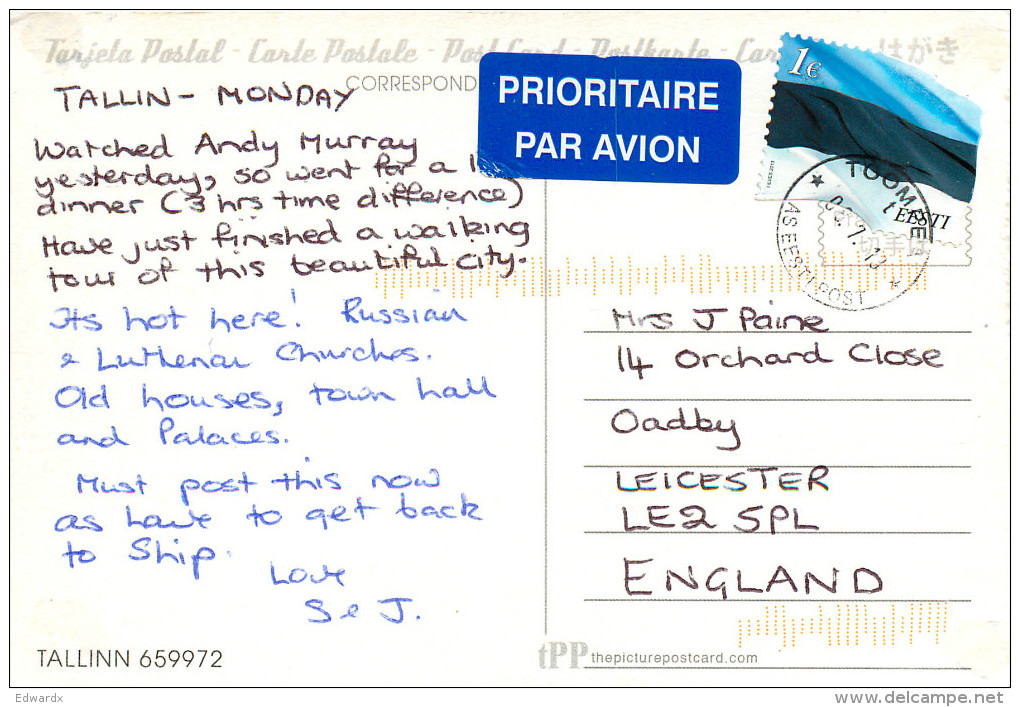 Tarjeta Postal - Carte Postale - Post Card - Postkarte - Car はがき
CORRESPOND
PRIORITAIRE
PAR AVION
1€
EESTI
TOOMPEA
08.7.13
AS EESTI POST
切手
TALLIN - MONDAY
Watched Andy Murray
yesterday, so went for a l
dinner (3 hrs time difference)
Have just finished a walking
tour of this beautiful city.
Its hot here! Russian
& Lutheran Churches.
Old houses, town hall
and Palaces.
Must post this now
as have to get back
to Ship.
Love
S & J.
Mrs J Paine
14 Orchard Close
Oadby
LEICESTER
LE2 5PL
ENGLAND
TALLINN 659972
tPP thepicturepostcard.com
Edwardx
delcampe.net